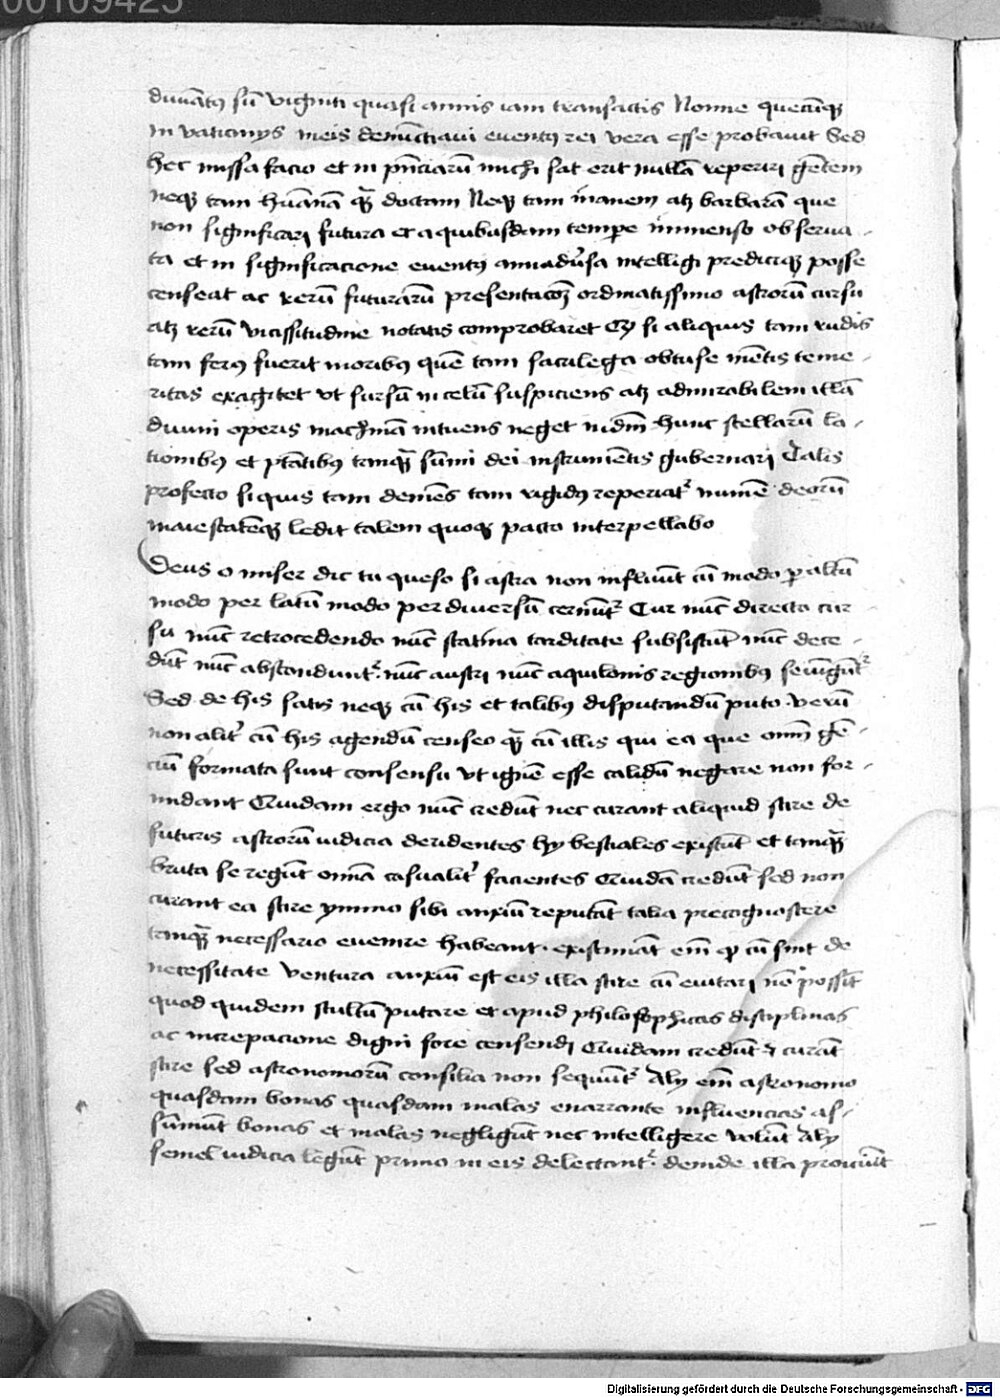 00109425
diuinatus sū viginti quasi annis iam transactis Nonne quecūqȝ
in vaticinijs meis denūctiaui euentus rei vera esse probauit Sed
hec missa facio et in pn̄ciarū michi sat erit nullā reperiri gētem
neqȝ tam hūanā qȝ̄ doctam Neqȝ tam inanem atqȝ barbarā que
non significari futura et a quibusdam tempe immenso obserua-
ta et in significacione euentus aiaduersa intelligi prediciqȝ posse
censeat ac rerū futurarū presentacōȝ ordinatissimo astrorū cursu
atqȝ rerū vicissitudine notatis comprobaret Et si aliquis tam rudis
tam ferus fuerit moribus quē tam sacrilega obtuse mētis teme-
ritas exagitet vt sursū in celū suspiciens atqȝ admirabilem illā
diuini operis machinā intuens neget nidm hunc stellarū la-
tionibus et ptātibus tanqȝ̄ sūmi dei instrumētis gubernari Talis
profecto siquis tam demēs tam rigidus reperiatr numē deorū
maiestatēqȝ ledit talem quoqȝ pacto interpellabo
Deus o miser dic tu queso si astra non influūt cū modo p altū
modo per latū modo per diuersū cernūtr Cur nūc directo cur
su nūc retrocedendo nūc statiua tarditate subsistūt nūc dece-
dūt nūc abscondūtr nūc austri nūc aquilonis regionibus seiūgūtr
Sed de his satis neqȝ cū his et talibus disputandū puto verū
non alitr cū his agendū censeo qȝ̄ cū illis qui ea que om̄ gē-
ciū formata sunt consensu vt ignē esse calidū negare non for-
midant Quidam ergo nūc credūt nec curant aliquid scire de
futuris astrorū iudicia deridentes hy bestiales existūt et tanqȝ̄
bruta se regūt om̄ia casualitr facientes Quidā credūt sed non
curant ea scire ymmo sibi anxiū reputāt talia precognoscere
tanqȝ̄ necessario euenire habeant existimāt em̄ qȝ cū sint de
necessitate ventura anxiū est eis illa scire cū euitari nō possīt
quod quidem stultū putare et apud philosophicas disciplinas
ac increpacione digni fore censendi Quidam credūt & curāt
scire sed astronomorū consilia non sequūtr Aly em̄ astronomo
quasdam bonas quasdam malas enarrante influencias as-
sūmūt bonas et malas negligūt nec intelligere volūt Aly
semel iudicia legūt primo in eis delectantr deinde illa proiciūt
Digitalisierung gefördert durch die Deutsche Forschungsgemeinschaft - DFG